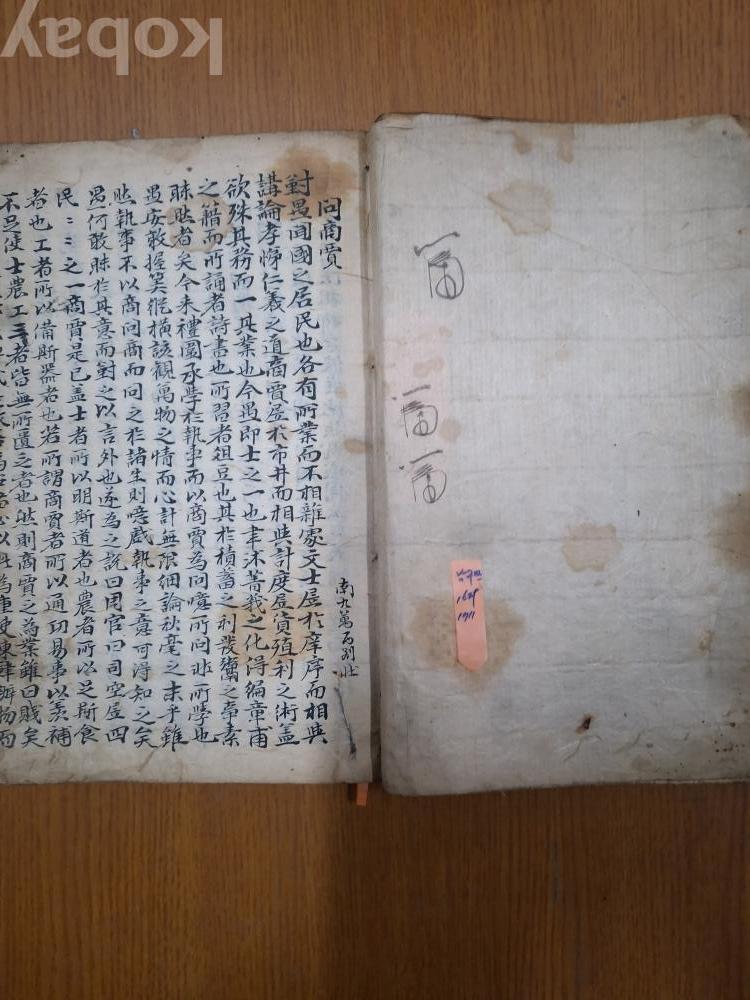 kobay
問商賈
南九萬
對愚聞國之居民也各有所業而不相雜處文士居於庠序而相與
講論孝悌仁義之道商賈居於市井而相與計度居貨殖利之術盖
欲殊其務而一其業也今愚即士之一也聿沐菁莪之化得編章甫
之籍而所誦者詩書也所習者俎豆也其於積蓄之利發鬻之素
昧昧者矣今來禮圍承學於執事而以商賈為問噫所問非所學也
愚安敢握筭縱橫該觀萬物之情而心計無限細論秋毫之末乎雖
然執事不以商問商而問之於諸生則噫戱執事之意可得知之矣
愚何敢昧於其意而對之以言外也遂為之說曰周官曰司空居四
民〻〻之一商賈是已盖士者所以明斯道者也農者所以足斯食
者也工者所以備斯器者也若所謂商賈者所以通功易事以羨補
不足使士農工三者皆無所匱乏者也然則商賈之為業雖曰賤矣
남구만
1629
1711